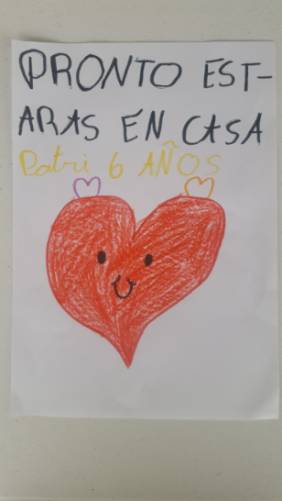 PRONTO EST-
ARAS EN CASA
Patri 6 AÑOS